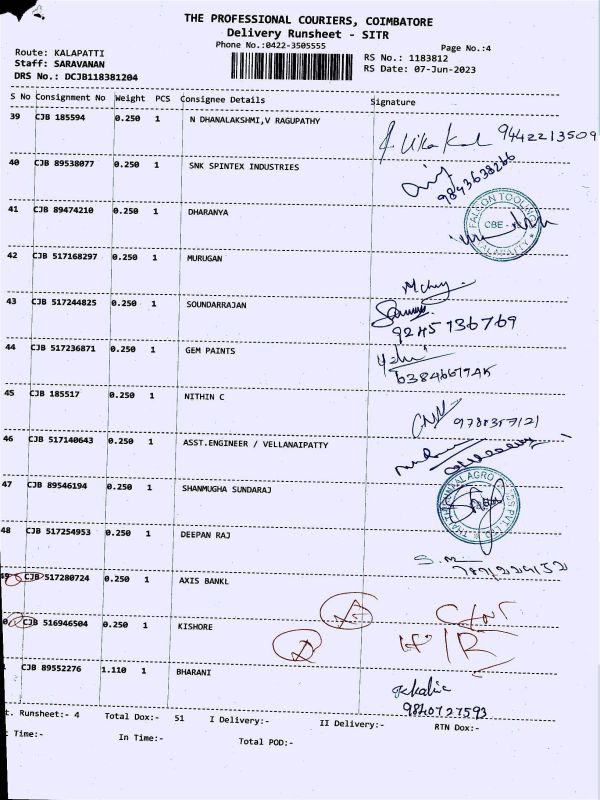 THE PROFESSIONAL COURIERS, COIMBATORE
Delivery Runsheet - SITR
Phone No.:0422-3505555
Page No.:4
Route: KALAPATTI
Staff: SARAVANAN
DRS No.: DCJB118381204
RS No.: 1183812
RS Date: 07-Jun-2023
S No Consignment No Weight PCS Consignee Details Signature
39 CJB 185594 0.250 1 N DHANALAKSHMI,V RAGUPATHY
9442213509
40 CJB 89538077 0.250 1 SNK SPINTEX INDUSTRIES
9843638266
41 CJB 89474210 0.250 1 DHARANYA
FALCON TOOLING
CBE -
KALAPATTY
42 CJB 517168297 0.250 1 MURUGAN
43 CJB 517244825 0.250 1 SOUNDARRAJAN
9245136769
44 CJB 517236871 0.250 1 GEM PAINTS
45 CJB 185517 0.250 1 NITHIN C
46 CJB 517140643 0.250 1 ASST.ENGINEER / VELLANAIPATTY
47 CJB 89546194 0.250 1 SHANMUGHA SUNDARAJ
AGRO
PVT. LTD
48 CJB 517254953 0.250 1 DEEPAN RAJ
49 CJB 517280724 0.250 1 AXIS BANKL
CJB 516946504 0.250 1 KISHORE
CJB 89552276 1.110 1 BHARANI
9840727593
t. Runsheet:- 4 Total Dox:- 51 I Delivery:- II Delivery:- RTN Dox:-
Time:- In Time:- Total POD:-